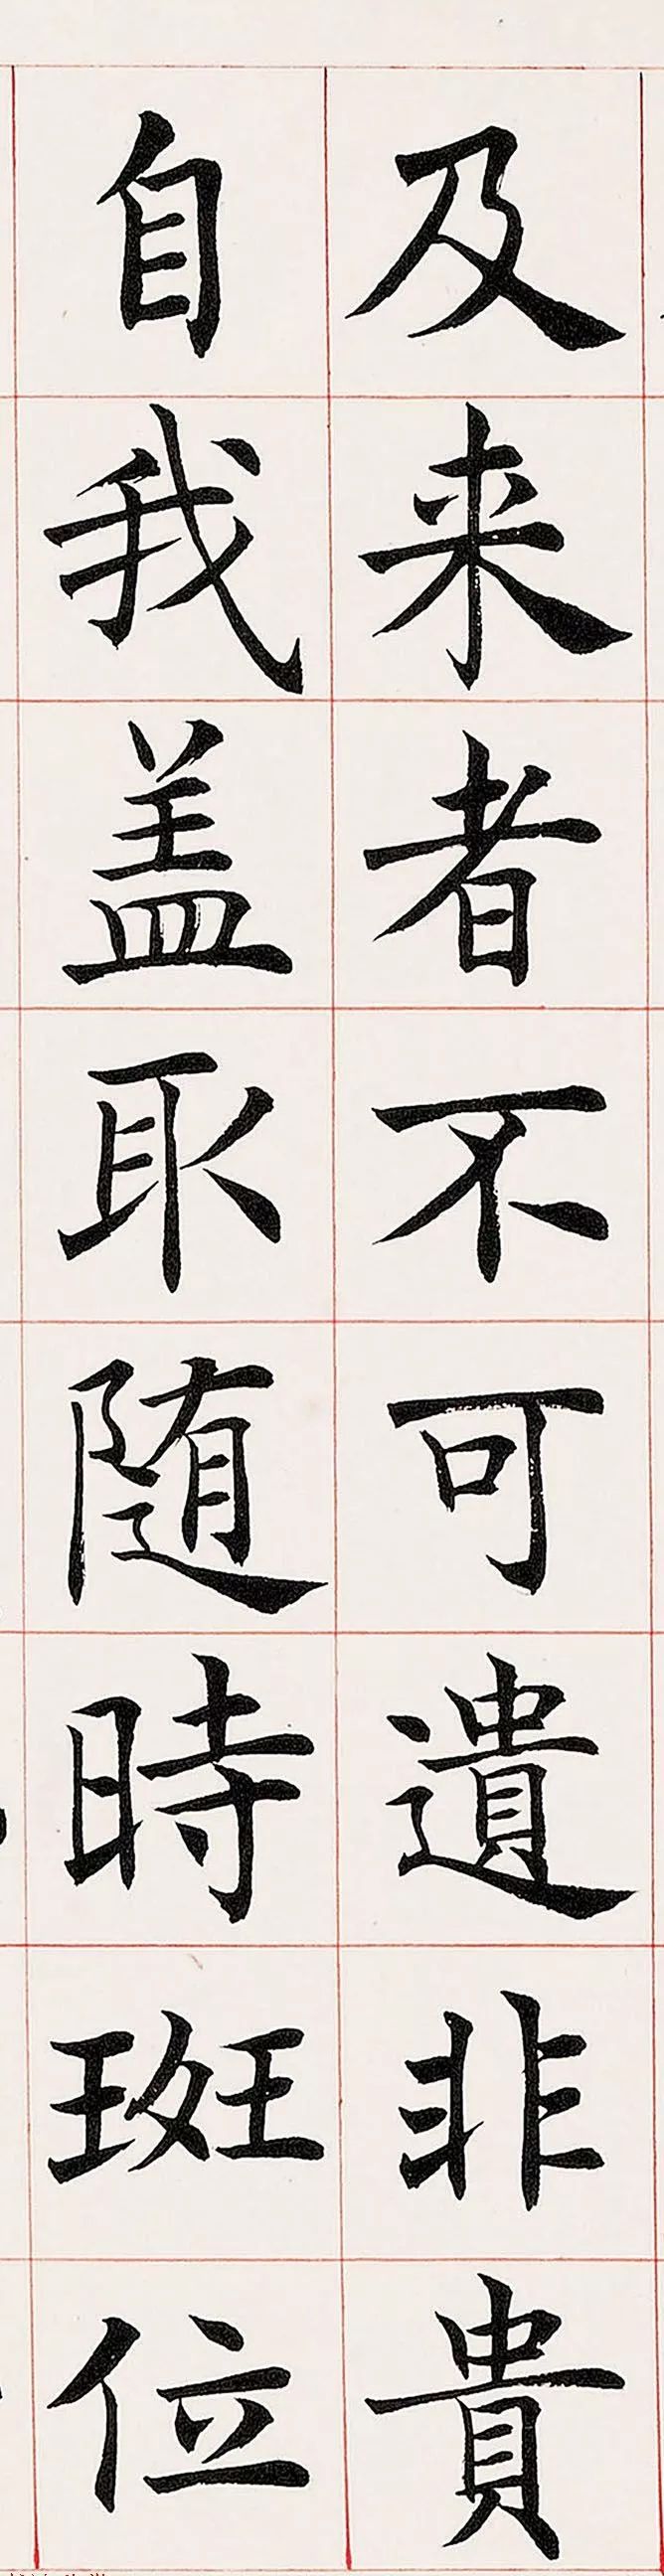 及来者不可遺非貴
自我盖取随時斑位